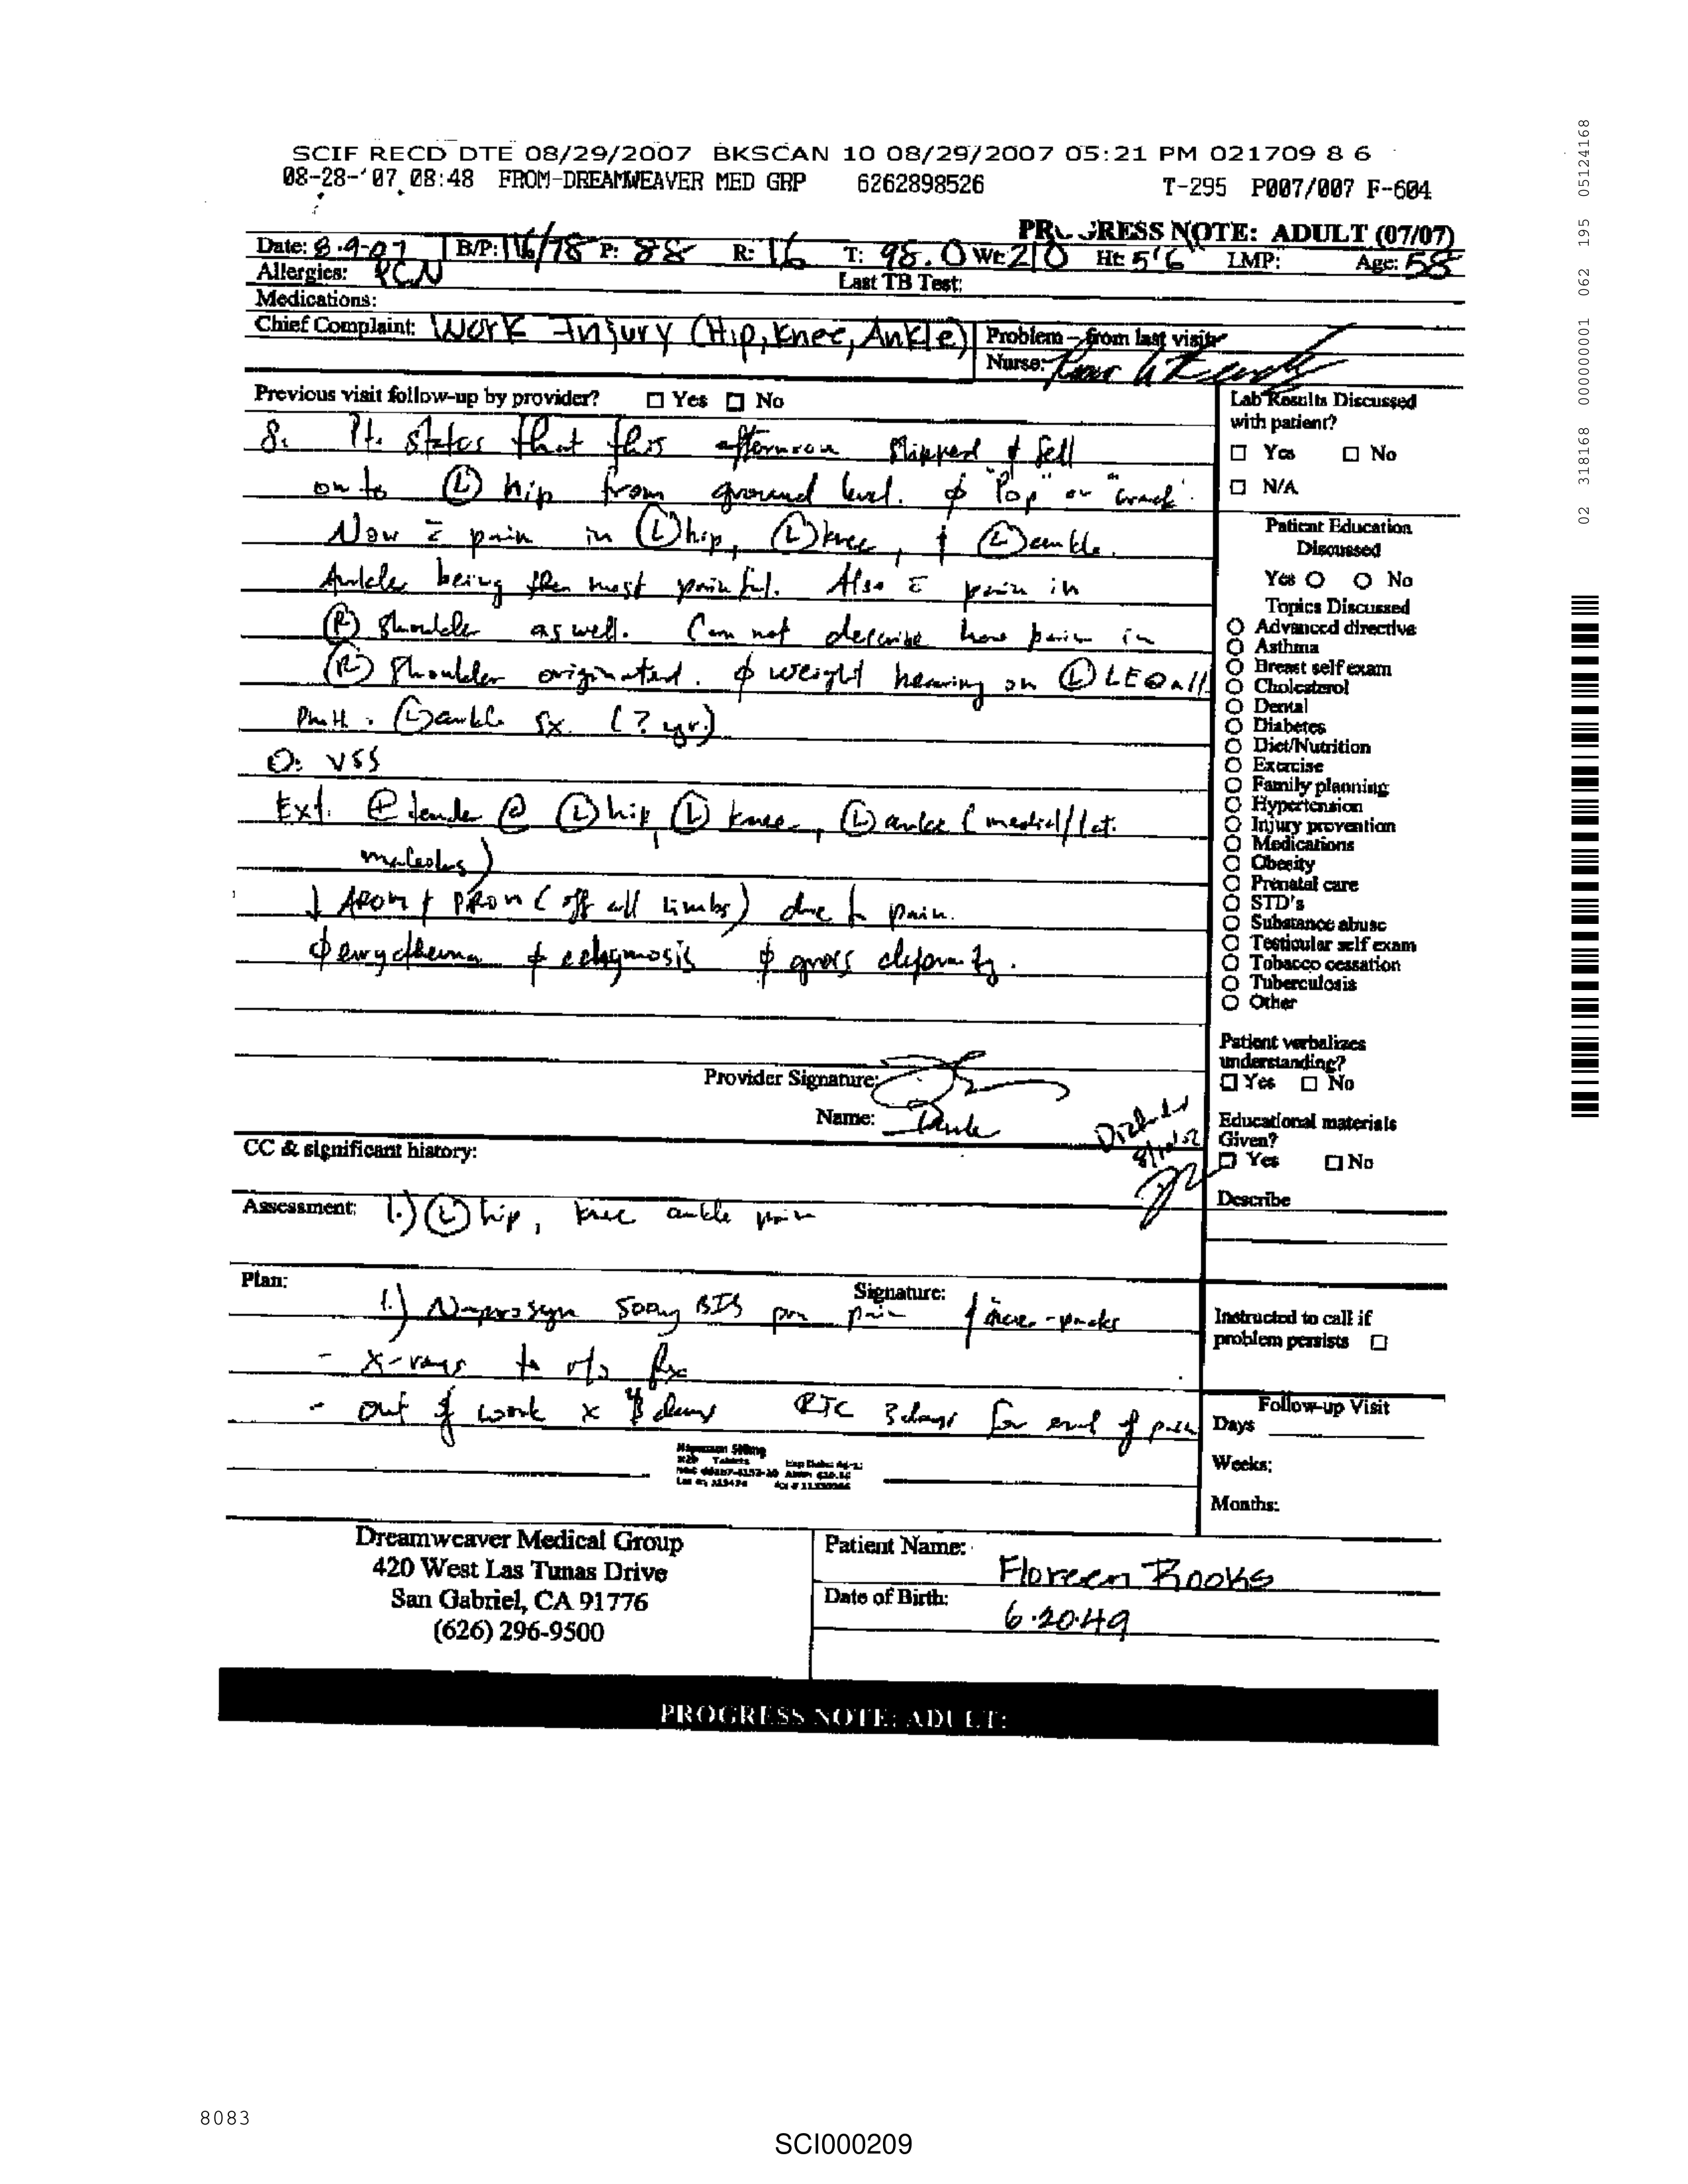 SCIF RECD DTE 08/29/2007 BKSCAN 10 08/29/2007 05:21 PM 021709 8 6
08-28-'07 08:48 FROM-DREAMWEAVER MED GRP 6262898526 T-295 P007/007 F-604
PROGRESS NOTE: ADULT (07/07)
Date: 8-9-07 B/P: 116/78 P: 88 R: 16 T: 98.0 Wt: 210 Ht: 5'6 LMP: Age: 58
Allergies: PCN Last TB Test:
Medications:
Chief Complaint: Work Injury (Hip, Knee, Ankle) Problem - from last visit:
Nurse:
Previous visit follow-up by provider? ☐ Yes ☐ No
S: Pt. states that this afternoon slipped & fell
onto Ⓛ hip from ground level. φ "Pop" or "crack".
Now c̄ pain in Ⓛ hip, Ⓛ knee, & Ⓛ ankle.
Ankle being the most painful. Also c̄ pain in
Ⓡ shoulder as well. Can not describe how pain in
Ⓡ shoulder originated. φ weight bearing on Ⓛ LE @ all
PmH: Ⓛ ankle sx. (? yr.)
O: VSS
Ext. ⊕ tender @ Ⓛ hip, Ⓛ knee, Ⓛ ankle (medial/lat.
maleolus)
↓ AROM & PROM (of all limbs) due to pain.
φ erythema φ echymosis φ gross deformity.
Provider Signature:
Name:
CC & significant history:
Assessment: 1.) Ⓛ hip, knee ankle pain
Plan: Signature:
1.) Naprosyn 500mg BID prn pain
- X-rays to r/o fx
- out of work x days RTC 3 days for eval of pain
Lab Results Discussed
with patient?
☐ Yes ☐ No
☐ N/A
Patient Education
Discussed
Yes ○ ○ No
Topics Discussed
○ Advanced directive
○ Asthma
○ Breast self exam
○ Cholesterol
○ Dental
○ Diabetes
○ Diet/Nutrition
○ Exercise
○ Family planning
○ Hypertension
○ Injury prevention
○ Medications
○ Obesity
○ Prenatal care
○ STD's
○ Substance abuse
○ Testicular self exam
○ Tobacco cessation
○ Tuberculosis
○ Other
Patient verbalizes
understanding?
☐ Yes ☐ No
Educational materials
Given?
☐ Yes ☐ No
Describe
Instructed to call if
problem persists ☐
Follow-up Visit
Days
Weeks:
Months:
Dreamweaver Medical Group
420 West Las Tunas Drive
San Gabriel, CA 91776
(626) 296-9500
Patient Name: Floreen Rooks
Date of Birth: 6-20-49
PROGRESS NOTE: ADULT:
02 318168 000000001 062 195 05124168
8083
SCI000209